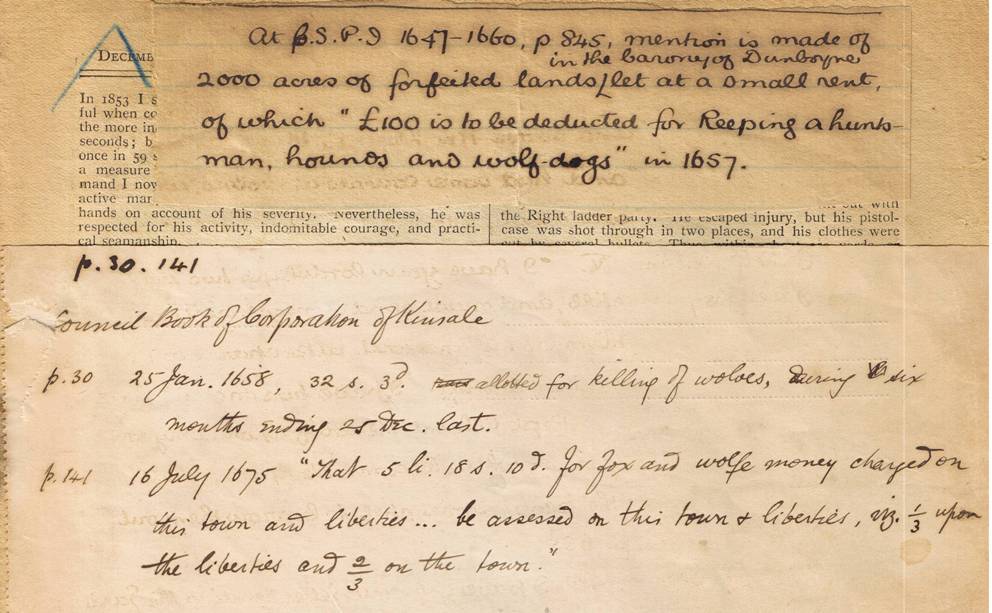 At C.S.P.I 1647-1660, p 845, mention is made of
in the barony of Dunboyne
2000 acres of forfeited lands/let at a small rent,
of which "£100 is to be deducted for Keeping a hunts-
man, hounds and wolf-dogs" in 1657.
DECEMB
In 1853 I s
ful when co
the more in
seconds; b
once in 59 s
a measure
mand I nov
active mar
hands on account of his severity. Nevertheless, he was
respected for his activity, indomitable courage, and practi-
cal seamanship.
out with
the Right ladder party. He escaped injury, but his pistol-
case was shot through in two places, and his clothes were
cut by several bullets. Thus within
p. 30. 141
Council Book of Corporation of Kinsale
p. 30 25 Jan. 1658, 32 s. 3d. allotted for killing of wolves, during six
months ending 25 Dec. last.
p. 141 16 July 1675 "That 5 li. 18 s. 10 d. for fox and wolfe money charged on
this town and liberties ... be assessed on this town & liberties, viz. 1/3 upon
the liberties and 2/3 on the town."